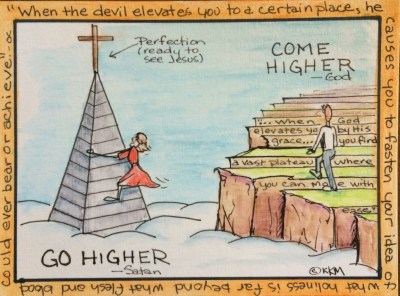 "When the devil elevates you to a certain place, he
causes you to fasten your idea of
what holiness is far beyond what flesh and blood
could ever bear or achieve!"
Perfection
(ready to
see Jesus)
GO HIGHER
—Satan
COME
HIGHER
—God
...When God
elevates yo by His
grace... you find
a vast plateau where
you can move with
ease"
©KKM